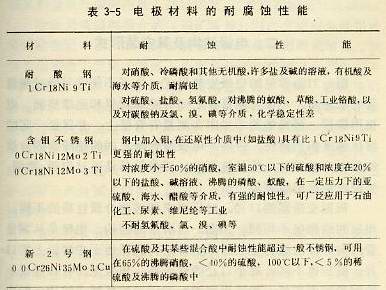 表 3-5 电极材料的耐腐蚀性能
材 料
耐 腐 蚀 性 能
耐 酸 钢
1Cr18Ni9Ti
对硝酸、冷磷酸和其他无机酸,许多盐及碱的溶液,有机酸及
海水等介质,耐腐蚀
对硫酸、盐酸、氢氟酸,对沸腾的蚁酸、草酸、工业铬酸,以
及对碳酸钠及氯、溴、碘等介质,化学稳定性差
含钼不锈钢
0Cr18Ni12Mo2Ti
0Cr18Ni12Mo3Ti
钢中加入钼,在还原性介质中(如盐酸)具有比1Cr18Ni9Ti
更强的耐蚀性
对浓度小于50%的硝酸,室温50℃以下的硫酸和浓度在20%
以下的盐酸、碱溶液、沸腾的磷酸、蚁酸,在一定压力下的亚
硫酸、海水、醋酸等介质,有强的耐蚀性。可广泛应用于石油
化工、尿素、维尼纶等工业
不耐氢氟酸、氯、溴、碘等
新 2 号 钢
00Cr26Ni35Mo3Cu
在硫酸及其某些混合酸中耐蚀性能超过一般不锈钢,可用
在65%的沸腾硝酸,<10%的硫酸,100℃以下,<5%的稀
硫酸及沸腾的磷酸中